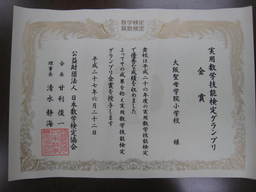 数学検定
算数検定
実用数学技能検定グランプリ
金賞
大阪聖母学院小学校 様
貴校は平成二十六年度の実用数学技能検定
で優秀な成績を収めました
よってその成果を称え実用数学技能検定
グランプリ金賞を授与します
平成二十七年六月二十二日
公益財団法人 日本数学検定協会
会長 甘利俊一
理事長 清水静海